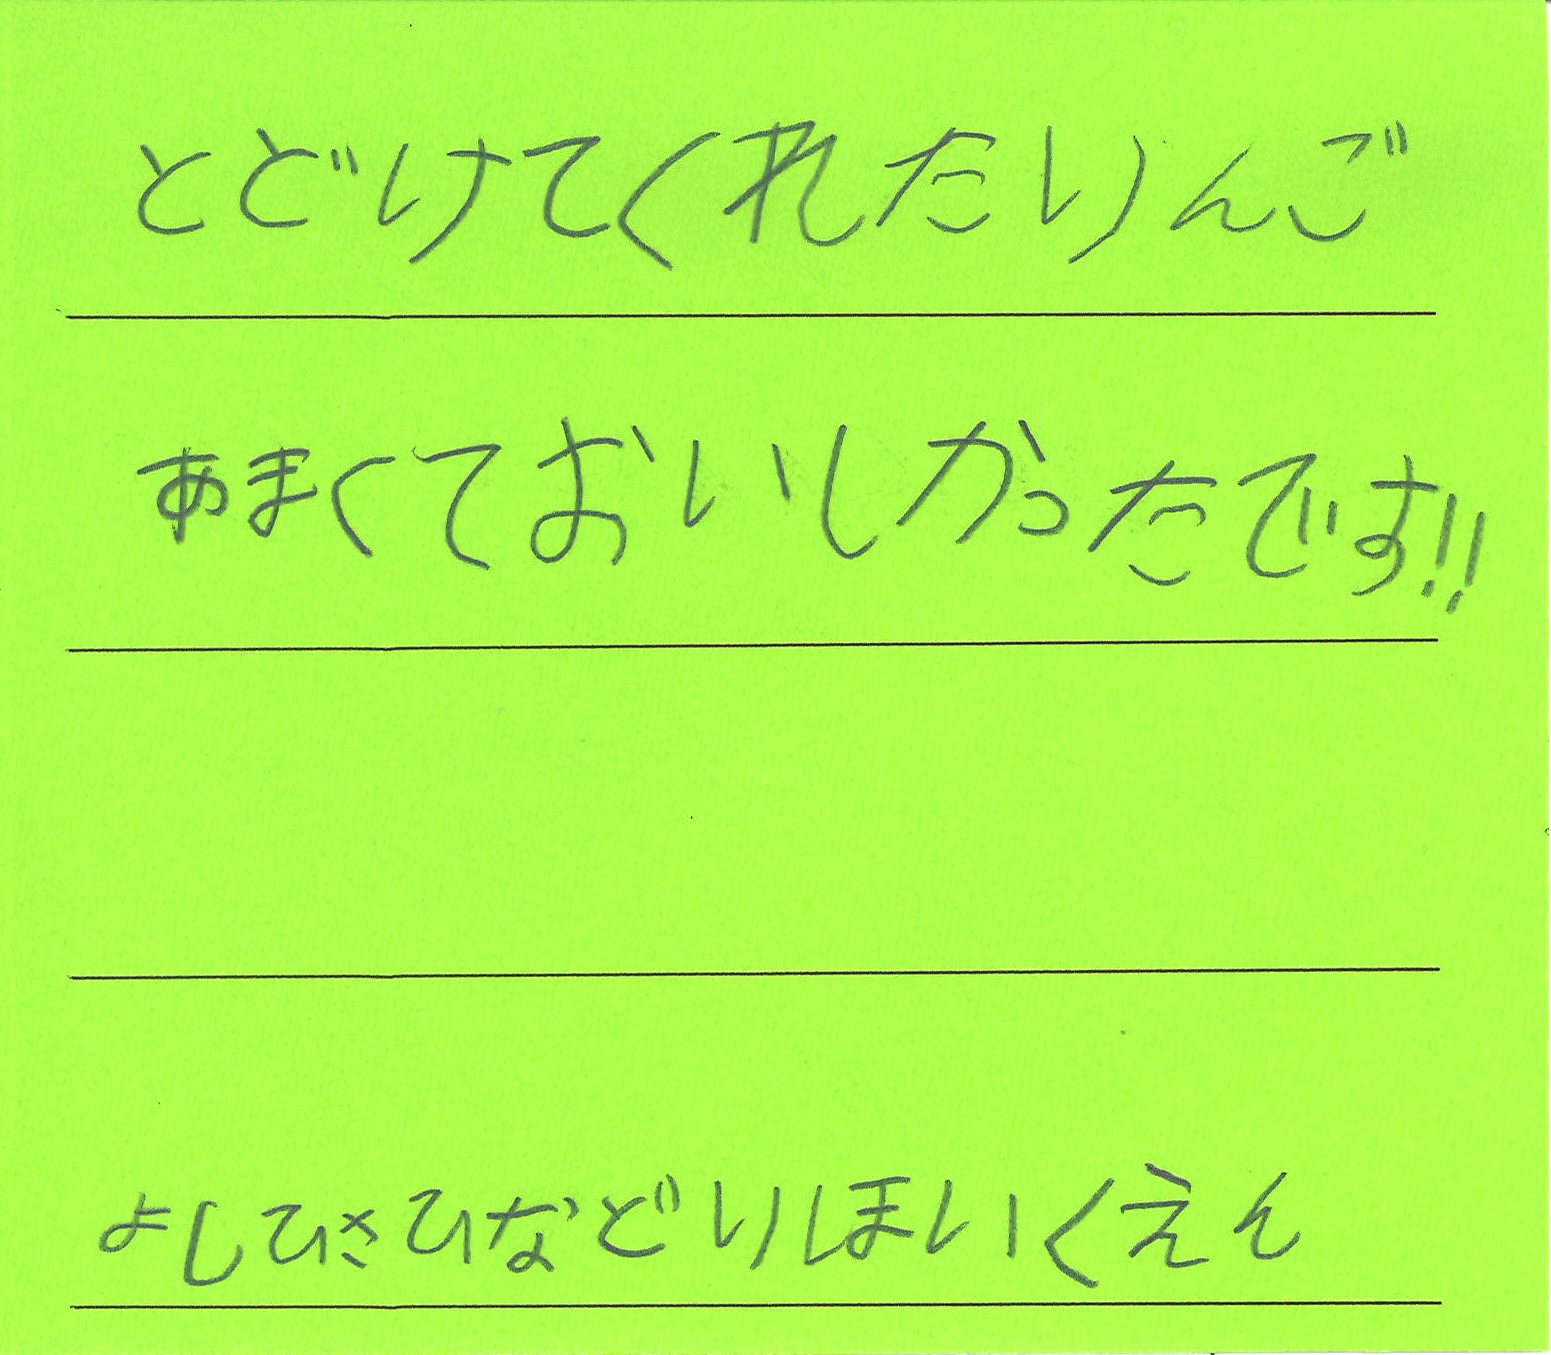 とどけてくれたりんご
あまくておいしかったです!!
よしひさひなどりほいくえん